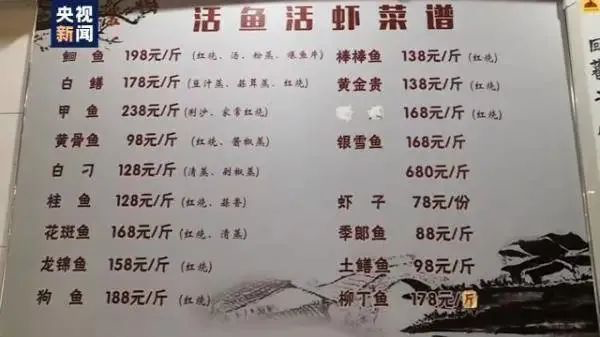 央视
新闻
活鱼活虾菜谱
鮰鱼 198元/斤 (红烧、汤、粉蒸、爆鱼片)
白鳝 178元/斤 (豆汁蒸、蒜茸蒸、红烧)
甲鱼 238元/斤 (剁沙、家常红烧)
黄骨鱼 98元/斤 (红烧、酱椒蒸)
白刁 128元/斤 (清蒸、剁椒蒸)
桂鱼 128元/斤 (红烧、蒜香)
花斑鱼 168元/斤 (红烧、清蒸)
龙锦鱼 158元/斤 (红烧)
狗鱼 188元/斤 (红烧)
棒棒鱼 138元/斤 (红烧)
黄金贵 138元/斤 (红烧)
168元/斤 (红烧)
银雪鱼 168元/斤
680元/斤
虾子 78元/份
季郎鱼 88元/斤
土鳝鱼 98元/斤
柳丁鱼 178元/斤